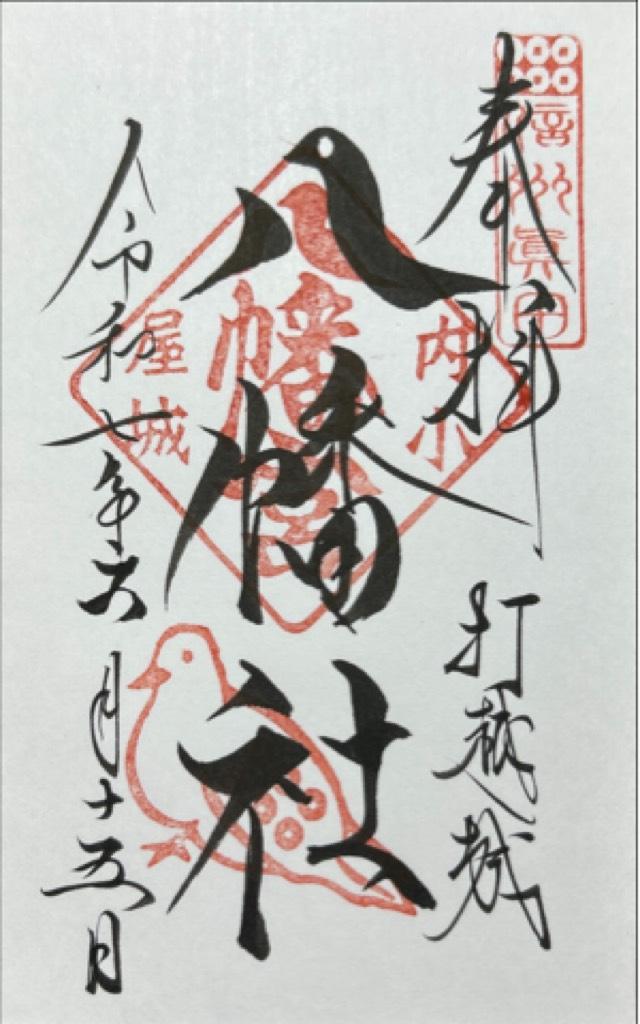 信州眞田
奉拝 打越城
内小屋城
八幡宮
八幡社
令和七年六月十五日